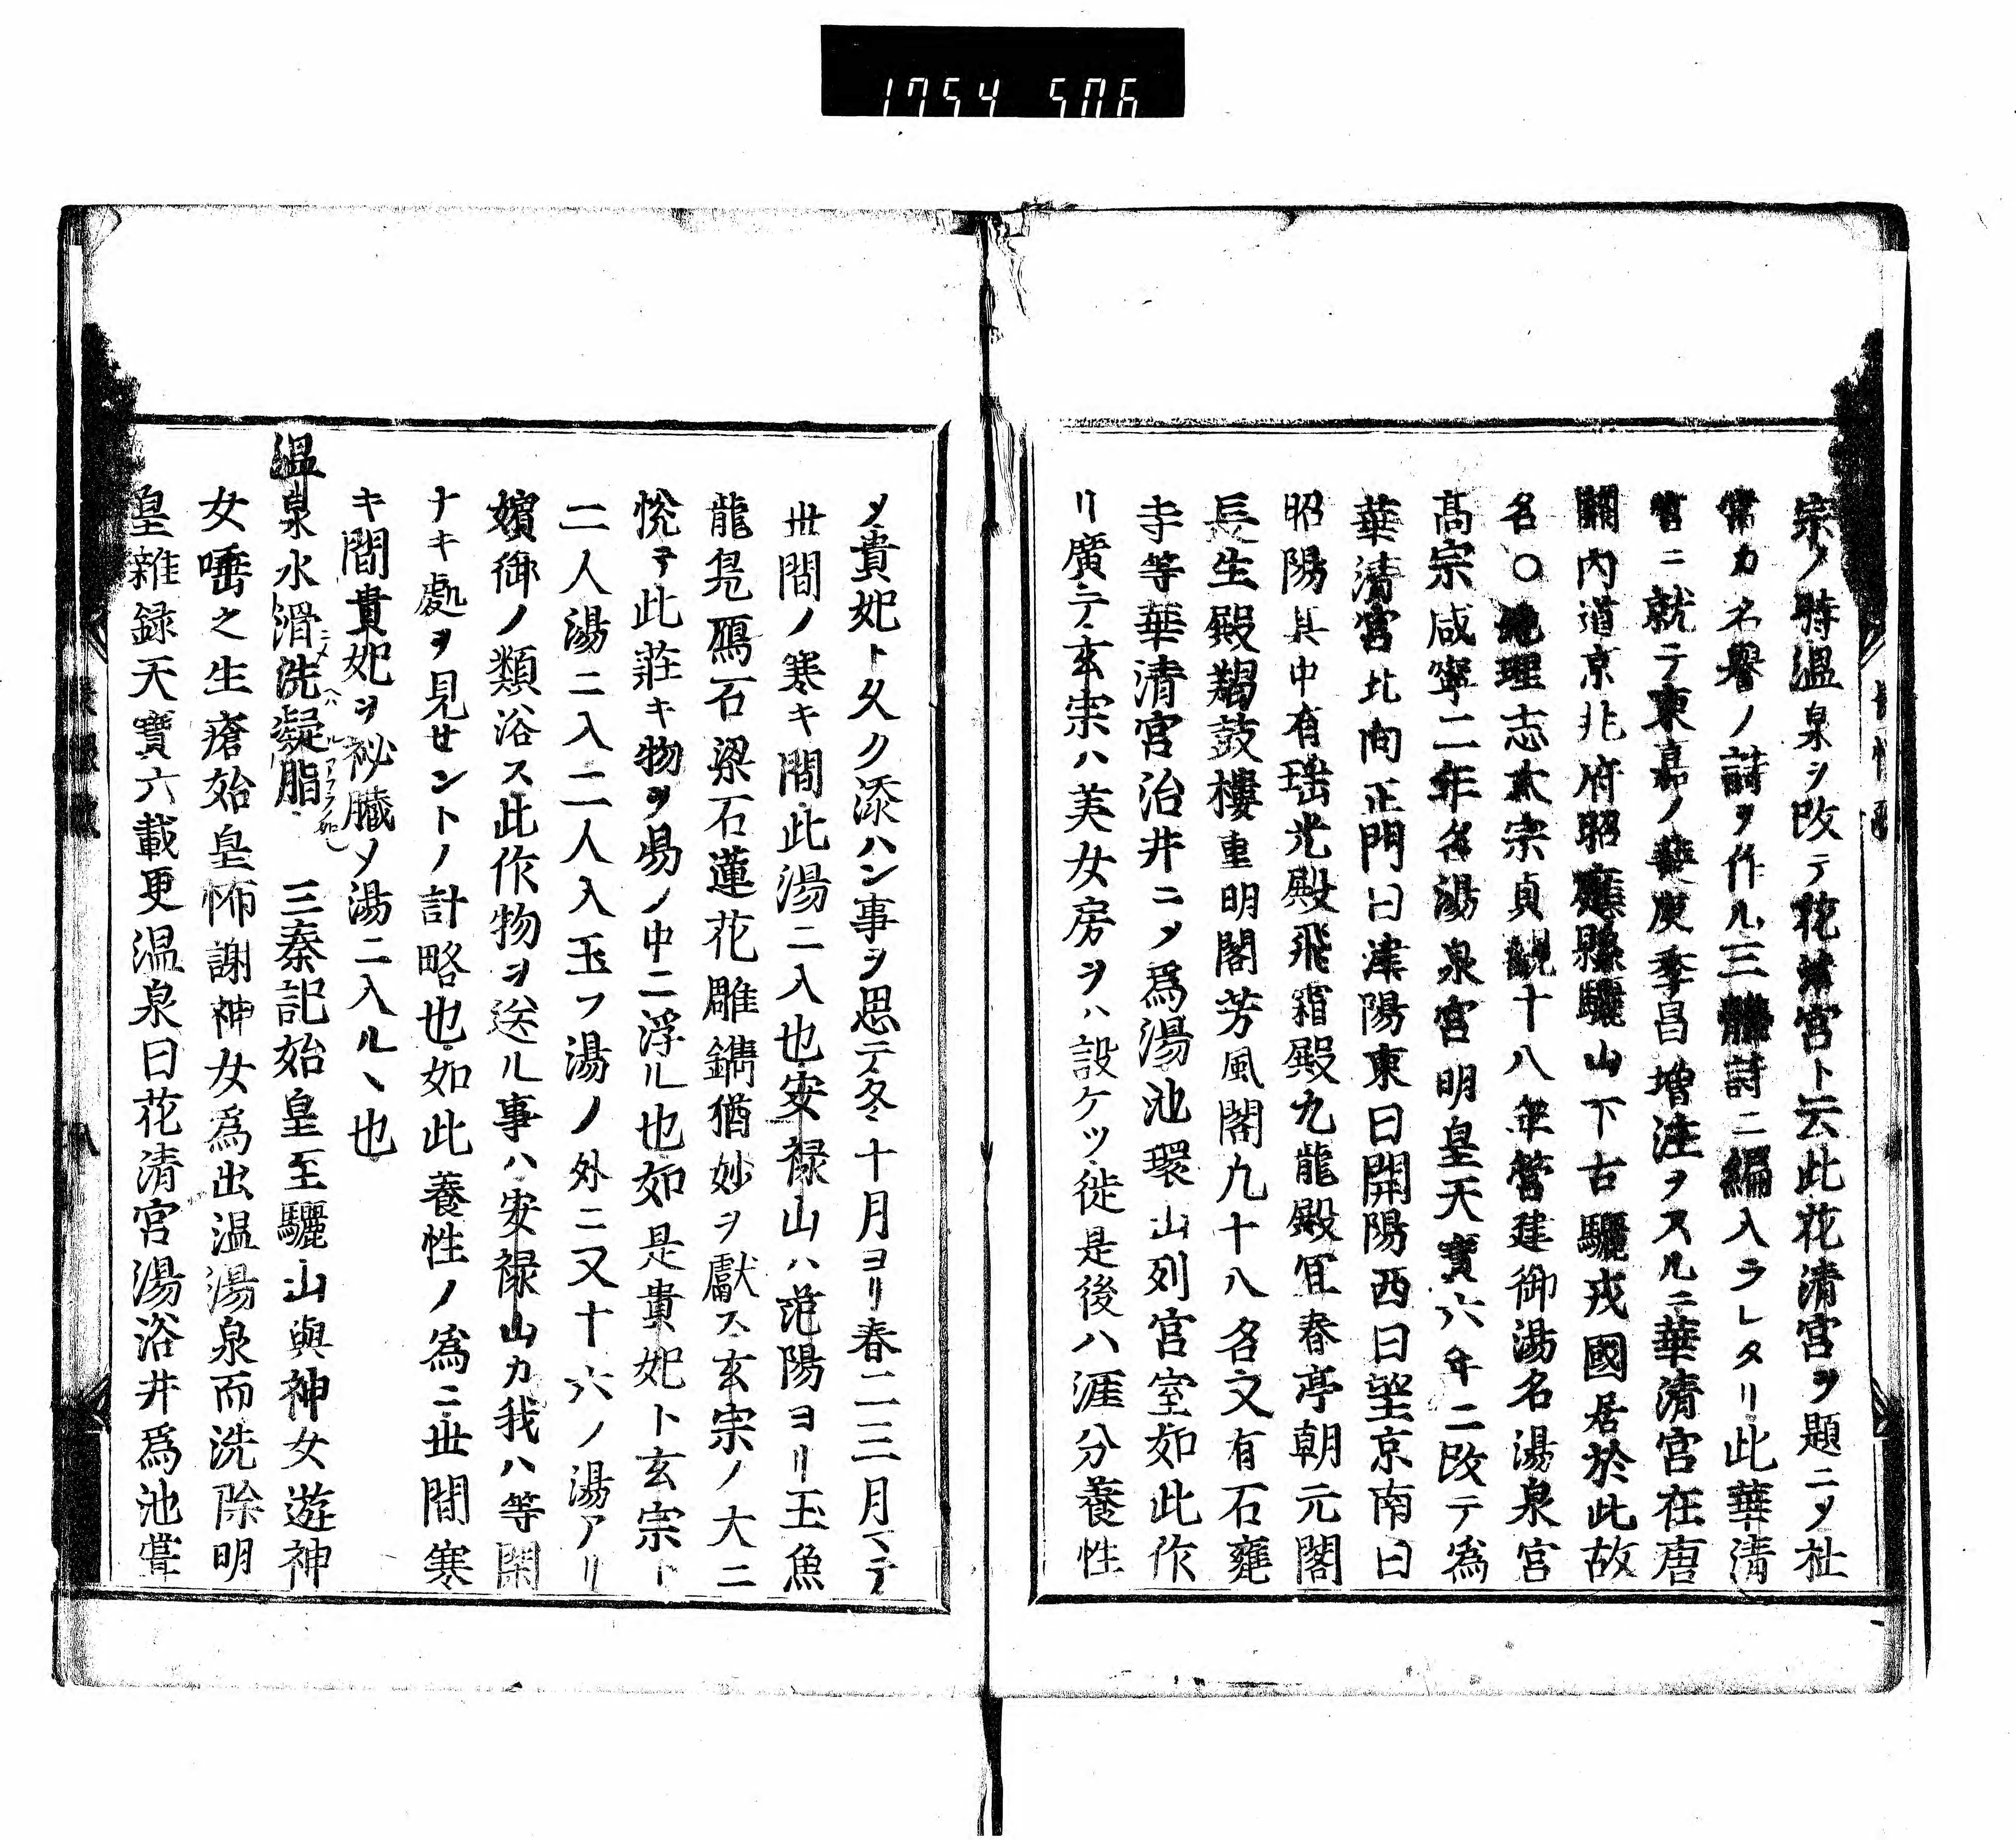 1754 506
宗ノ時温泉ヲ改テ花清宮ト云此花清宮ヲ題ニメ杜
常カ名譽ノ詩ヲ作ル三體詩ニ編入ラレタリ此華清
宮ニ就テ東嘉ノ裴庚季昌増注ヲスルニ華清宮在唐
關内道京兆府昭應縣驪山下古驪戎國居於此故
名〇地理志太宗貞観十八年營建御湯名湯泉宮
髙宗咸寧二年名湯泉宮明皇天寳六年ニ改テ為
華清宮北向正門曰津陽東曰開陽西曰望京南曰
昭陽其中有瑶光殿飛霜殿九龍殿冝春亭朝元閣
長生殿羯鼓樓重明閣芳風閣九十八名文有石甕
寺等華清宮治井ニメ爲湯池環山列宮室如此作
リ廣テ玄宗ハ美女房ヲハ設ケツ徙是後ハ涯分養性
メ貴妃ト久ク添ハン事ヲ思テ冬十月ヨリ春二三月マテ
丗間ノ寒キ間此湯ニ入也安禄山ハ范陽ヨリ玉魚
龍鳬鴈石梁石蓮花雕鐫猶妙ヲ獻ス玄宗ノ大ニ
恱テ此莊キ物ヲ昜ノ中ニ浮ル也如是貴妃ト玄宗ト
二人湯ニ入二人入玉フ湯ノ外ニ又十六ノ湯アリ
嬪御ノ類浴ス此作物ヲ送ル事ハ安禄山カ我ハ等閑
ナキ處ヲ見セントノ計略也如此養性ノ為ニ丗間寒
キ間貴妃ヲ祕臓メ湯ニ入ルヽ也
温泉水滑洗凝脂 三秦記始皇至驪山與神女遊神
女唾之生瘡始皇怖謝神女爲出温湯泉而洗除明
皇雜録天寳六載更温泉曰花清宮湯浴井爲池
八